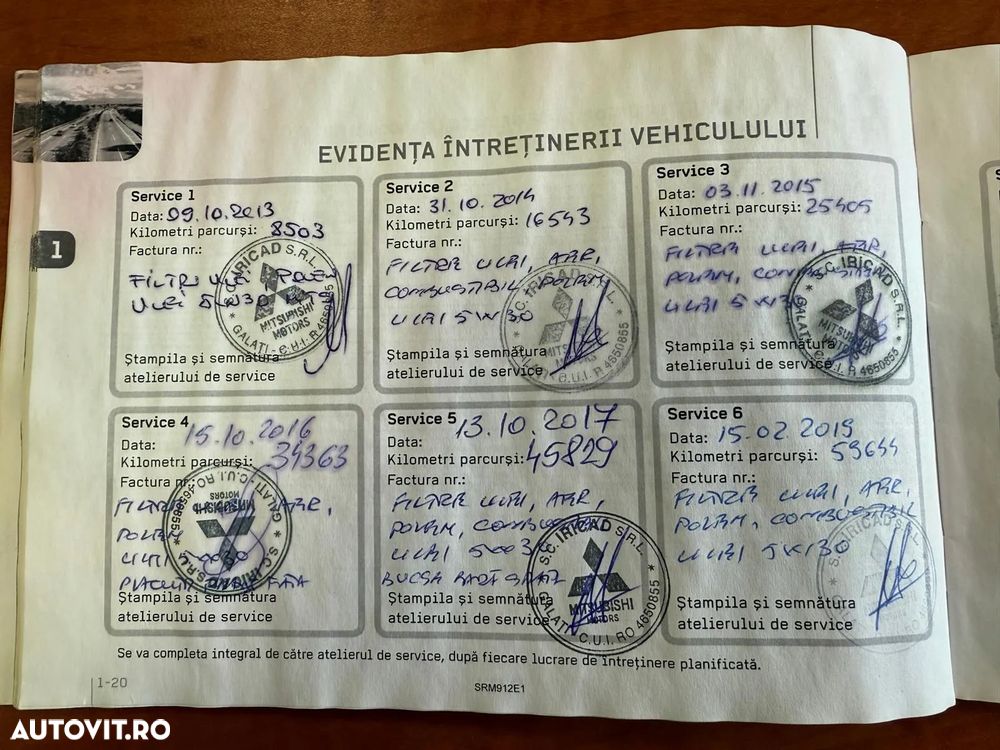 EVIDENȚA ÎNTREȚINERII VEHICULULUI
1
Service 1
Data: 09.10.2013
Kilometri parcurși: 8503
Factura nr.:
FILTRU ULEI POLEN
ULEI 5W30
Ștampila și semnătura
atelierului de service
S.C. IRICAD S.R.L.
MITSUBISHI
MOTORS
GALATI - C.U.I. R 4650855
Service 2
Data: 31.10.2014
Kilometri parcurși: 16543
Factura nr.:
FILTRE ULEI, AER,
COMBUSTIBIL POLEN
ULEI 5W30
Ștampila și semnătura
atelierului de service
S.C. IRICAD S.R.L.
MITSUBISHI
MOTORS
GALATI - C.U.I. R 4650855
Service 3
Data: 03.11.2015
Kilometri parcurși: 25405
Factura nr.:
FILTRE ULEI, AER,
POLEN, COMBUSTIBIL
ULEI 5W30
Ștampila și semnătura
atelierului de service
S.C. IRICAD S.R.L.
MITSUBISHI
4650855
Service 4
Data: 15.10.2016
Kilometri parcurși: 34363
Factura nr.:
FILTRE AER,
POLEN
ULEI 5W30
PLACUTE FATA
Ștampila și semnătura
atelierului de service
S.C. IRICAD S.R.L.
MITSUBISHI
MOTORS
GALATI - C.U.I. RO 4650855
Service 5
Data: 13.10.2017
Kilometri parcurși: 45829
Factura nr.:
FILTRE ULEI, AER,
POLEN, COMBUSTIBIL
ULEI 5W30
BUCSA
Ștampila și semnătura
atelierului de service
S.C. IRICAD S.R.L.
MITSUBISHI
MOTORS
GALATI - C.U.I. RO 4650855
Service 6
Data: 15.02.2019
Kilometri parcurși: 59644
Factura nr.:
FILTRE ULEI, AER,
POLEN, COMBUSTIBIL
ULEI 5W30
Ștampila și semnătura
atelierului de service
S.C. IRICAD S.R.L.
Se va completa integral de către atelierul de service, după fiecare lucrare de întreținere planificată.
1-20
SRM912E1
AUTOVIT.RO